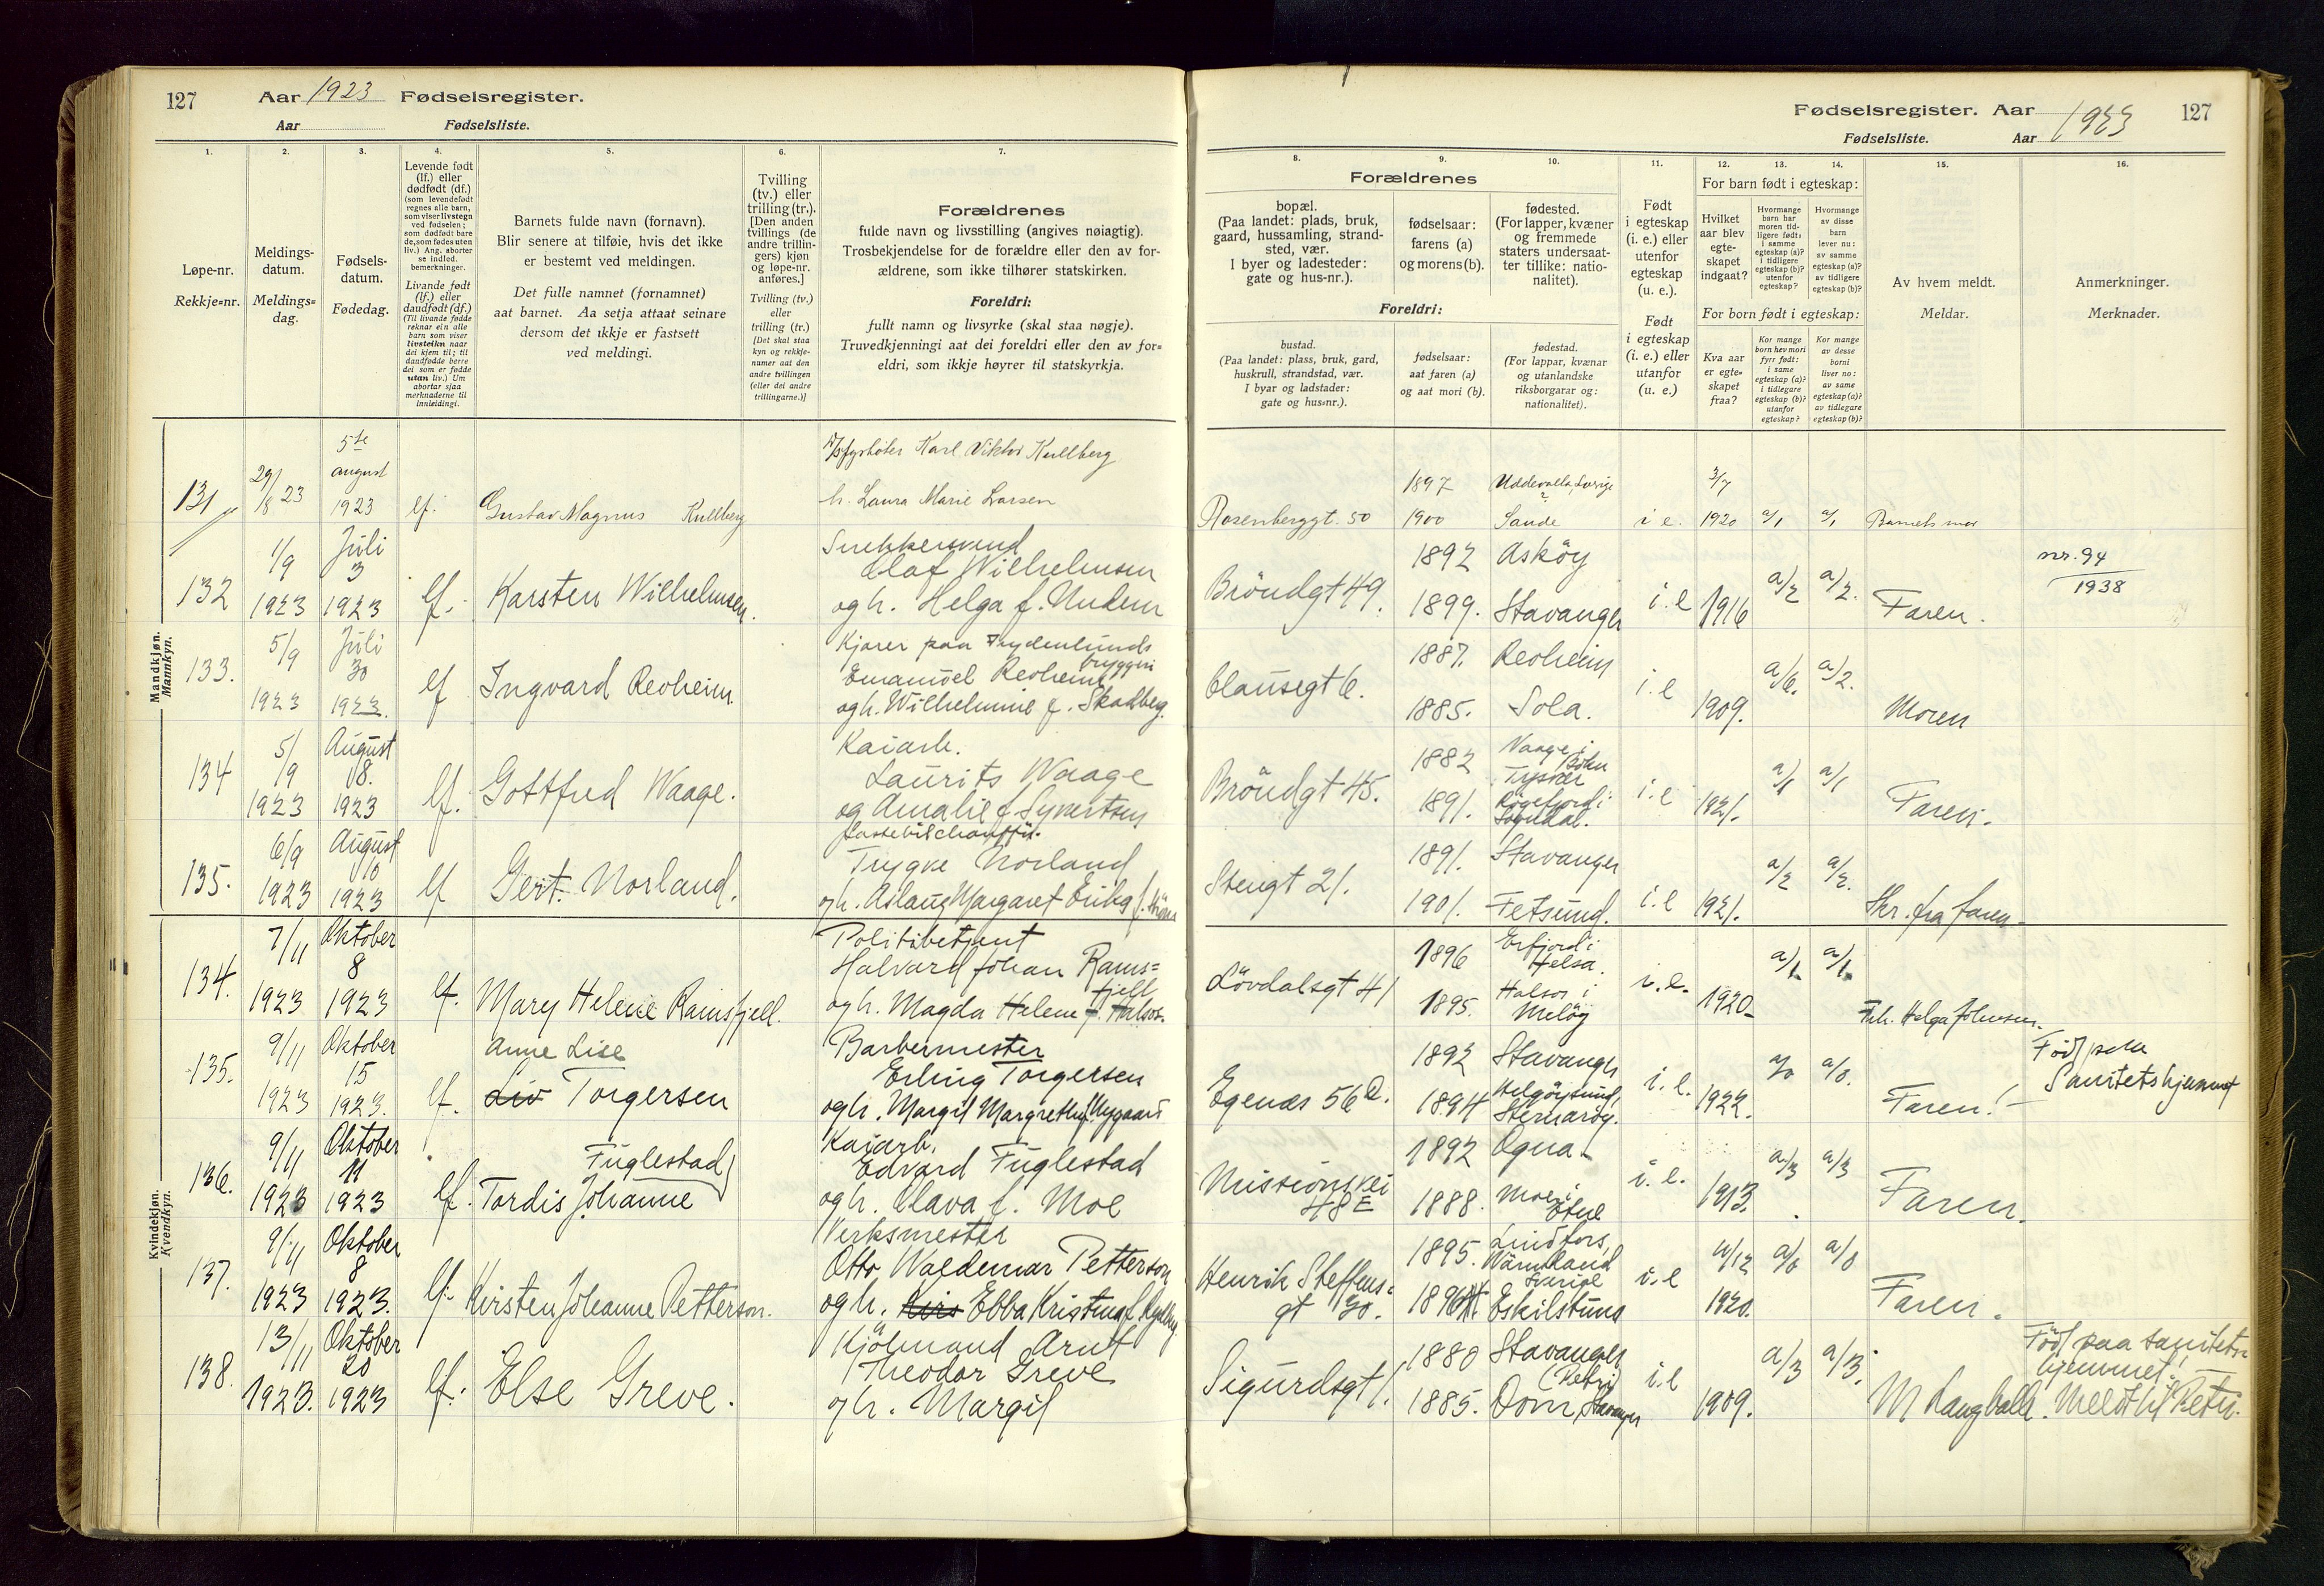 127 Aar 1923 Fødselsregister.
Aar Fødselsliste.
1. 2. 3. 4. 5. 6. 7.
Løpe-nr.
Rekkje=nr.
Meldings-
datum.
Meldings=
dag.
Fødsels-
datum.
Fødedag.
Levende født
(lf.) eller
dødfødt (df.)
(som levendefødt
regnes alle barn,
som viser livstegn
ved fødselen;
som dødfødt bare
de, som fødes uten
liv.) Ang. aborter
se indled.
bemerkninger.
Livande født
(lf.) eller
daudfødt (df.)
(Til livande fødde
reknar ein alle
barn som viser
livsteikn naar
dei kjem til; til
daudfødde berre
dei som er fødde
utan liv.) Um
abortar sjaa
merknaderne til
innleidingi.
Barnets fulde navn (fornavn).
Blir senere at tilføie, hvis det ikke
er bestemt ved meldingen.
Det fulle namnet (fornamnet)
aat barnet. Aa setja attaat seinare
dersom det ikkje er fastsett
ved meldingi.
Tvilling
(tv.) eller
trilling (tr.).
[Den anden
tvillings (de
andre trillin-
gers) kjøn
og løpe-nr.
anføres.]
Tvilling (tv.)
eller
trilling (tr.)
[Det skal staa
kyn og rekkje-
numer aat den
andre tvillingen
(eller dei andre
trillingarne.)]
Forældrenes
fulde navn og livsstilling (angives nøiagtig).
Trosbekjendelse for de forældre eller den av for-
ældrene, som ikke tilhører statskirken.
Foreldri:
fullt namn og livsyrke (skal staa nøgje).
Truvedkjenningi aat dei foreldri eller den av for=
eldri, som ikkje høyrer til statskyrkja.
Mandkjøn.
Mannkyn.
5te
29/8 23 august
131 1923 lf. Gustav Magnus Kullberg
Karl Viktor Kullberg
h. Laura Marie Larsen
1/9 Juli
3
132 1923 1923 lf. Karsten Wilhelmsen.
Snekkersvend
Olaf Wilhelmsen
og h. Helga f. Undem
5/9 Juli
30
133. 1923 1923. lf Ingvard Reoheim.
Kjører paa Trydenlunds
bryggeri
Emanuel Reoheim
og h. Wilhelmine f. Skadberg.
5/9 August
18.
134 1923 1923 lf. Gottfred Waage.
Kaiarb.
Laurits Waage
og Amalie f. Syvertsen
6/9 August
10
135. 1923 1923 lf Gert Norland.
Lastebilchauffør.
Trygve Norland
og h. Aslaug Margaret Erika f.
Kvindekjøn.
Kvendkyn.
7/11 Oktober
8
134. 1923 1923 lf. Mary Helene Ramsfjell.
Politibetjent
Halvard Johan Rams=
fjell
og h. Magda Helene f. Halsos.
9/11 Oktober
15
135. 1923 1923. lf. Anne Lise
Liv Torgersen
Barbermester
Erling Torgersen
og h. Margit Margrethe f. Nygaard
9/11 Oktober
11
136. 1923 1923 lf. Fuglestad
Tordis Johanne
Kaiarb.
Edvard Fuglestad
og h. Clava f. Moe
9/11 Oktober
8
137. 1923 1923. lf. Kirsten Johanne Petterson.
Verksmester
Otto Waldemar Petterson
og h. Kirs Ebba Kristina f.
13/11 Oktober
20
138. 1923. 1923 lf. Else Greve.
Kjøbmand Arnt
Theodor Greve
og h. Margit
Fødselsregister. Aar 1923 127
Fødselsliste. Aar
8. 9. 10. 11. 12. 13. 14. 15. 16.
Forældrenes
bopæl.
(Paa landet: plads, bruk,
gaard, hussamling, strand-
sted, vær.
I byer og ladesteder:
gate og hus-nr.).
fødselsaar:
farens (a)
og morens (b).
fødested.
(For lapper, kvæner
og fremmede
staters undersaat-
ter tillike: natio-
nalitet).
Foreldri:
bustad.
(Paa landet: plass, bruk, gard,
huskrull, strandstad, vær.
I byar og ladstader:
gate og hus=nr.).
fødselsaar:
aat faren (a)
og aat mori (b).
fødestad.
(For lappar, kvænar
og utanlandske
riksborgarar og:
nationalitet).
Født
i egteskap
(i. e.) eller
utenfor
egteskap
(u. e.).
Født
i egteskap
(i. e.) eller
utanfor
egteskap
(u. e.)
For barn født i egteskap:
Hvilket
aar blev
egte-
skapet
indgaat?
Hvormange
barn har
moren tid-
ligere født:
i samme
egteskap (a)?
i tidligere
egteskap (b)?
utenfor
egteskap?
Hvormange
av disse
barn
lever nu:
av samme
egteskap (a)?
av tidligere
egteskap (b)?
For born født i egteskap:
Kva aar
er egte=
skapet
fraa?
Kor mange
born hev mori
fyrr født:
i same
egteskap (a)?
i tidlegare
egteskap (b)?
utanfor
egteskap?
Kor mange
av desse
borni
liver no:
av same
egteskap (a)?
av tidlegare
egteskap (b)?
Av hvem meldt.
Meldar.
Anmerkninger.
Merknader.
1897 Uddevalla, Sverige 3/7
Rosenberggt. 50 1900 Sande i e. 1920 a/1 a/1 Barnets mor
1892 Askøy nr. 94
1938
Brøndgt 49. 1899. Stavanger i. e 1916 a/2 a/2. Faren.
1887. Reoheim
Clausegt 6. 1885. Sola. i. e 1909. a/6. a/2. Moren
1882 Vaage i
Tysvær
Brøndgt 45. 1891. Rægefjord i
Sogndal. i. e 1921. a/1 a/1 Faren.
1891. Stavanger
Stengt 21. 1901. Fetsund. i. e 1921. a/2 a/2. Skr. fra faren.
1896 Erfjord i
Jelsa.
Løvdalsgt 41 1895. Halsos i
Meløy i. e. 1920 a/1 a/1. Frk. Helga Johnsen.
1892 Stavanger Født paa
Sanitetshjemmet
Egenæs 56 1894 Helgøysund,
Sternarøy. i. e. 1922. a/0 a/0. Faren.
1892 Ogna
Missionsvei
48E 1888. Moe i
Etne i. e. 1913. a/3 a/3 Faren.
1895. Lindfors,
Wärmland
Sverige
Henrik Steffens=
gt 30. 1896 Eskilstuna i. e 4/12 1920. a/0 a/0 Faren.
1880 Stavanger
(Petri) Født paa sanitets
hjemmet.
Sigurdsgt 1. 1885. Dom, Stavanger i. e 1909. a/3 a/3. Meldt til Petri.